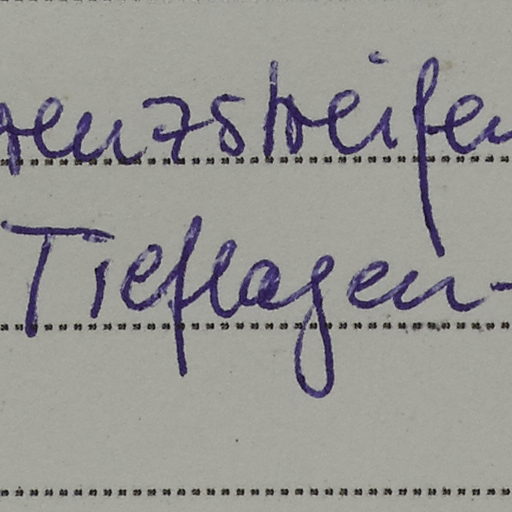 renzstreifen
Tieflagen-